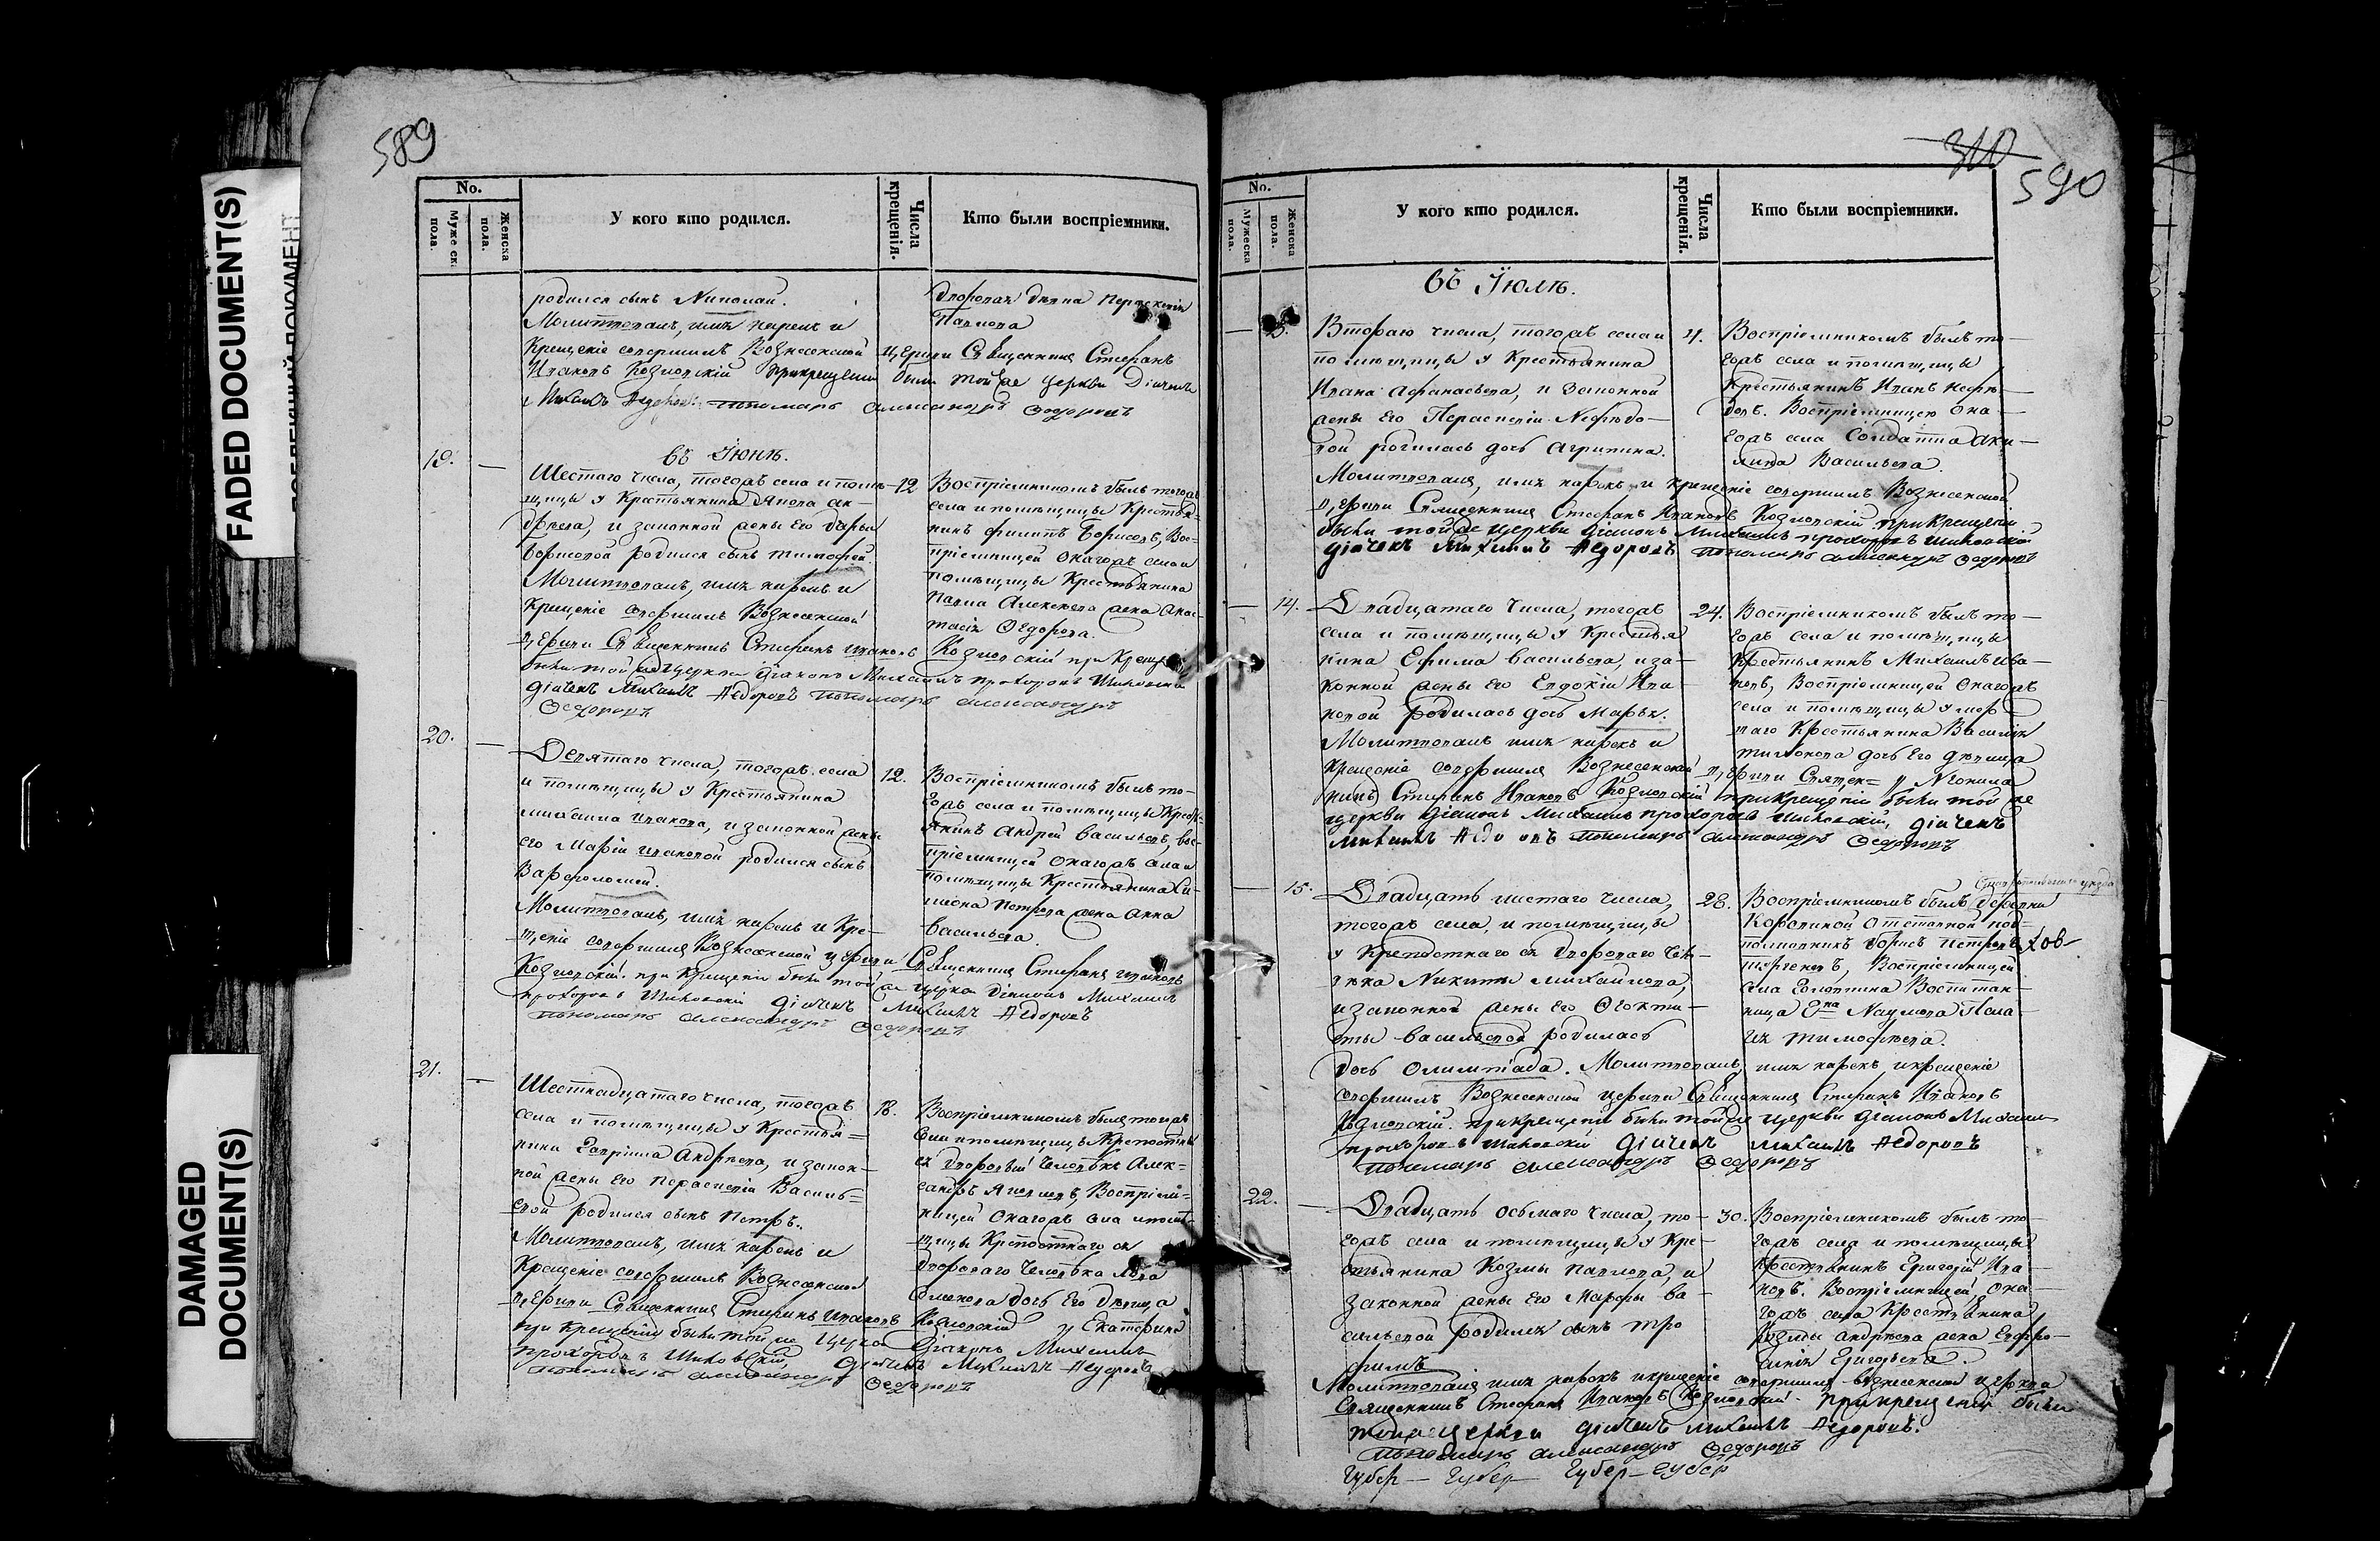 FADED DOCUMENT(S)
DAMAGED
DOCUMENT(S)
589
No.
Мужеск.
пола.
Женска
пола.
У кого кто родился.
Числа
крещенія.
Кто были воспріемники.
родился сынъ Николай.
Молитвовалъ, имя нарекъ и
Крещеніе совершилъ Вознесенской Церкви Священникъ Стефанъ
Ивановъ Козловскій при крещеніи были той же церкви Дьячекъ
Михаилъ Федоровъ. пономарь александръ Ѳедоровъ
Павлова
въ Іюнѣ.
19. —
Шестаго числа, тогожъ села и помѣ-
щицы у Крестьянина
и законной жены Его Дарьи
Борисовой родился сынъ тимофей.
Молитвовалъ, имя нарекъ и
Крещеніе совершилъ Вознесенской
Церкви Священникъ Стефанъ Ивановъ Козловскій при Крещ
были той же Церкви Діаконъ Михаилъ прохоровъ Шиховскій
дьячекъ Михаилъ Федоровъ пономарь александръ
Ѳедоровъ
12
Воспріемникомъ былъ тогожъ
села и помѣщицы Крестья-
нинъ филипъ Борисовъ, Вос-
пріемницей Онагожъ села и
помѣщицы Крестьянина
Павла Алексѣева жена Анас-
тасія Ѳедорова.
20. —
Девятаго числа, тогожъ села
и помѣщицы у Крестьянина
михаила иванова, и законной жены
его Маріи ивановой родился сынъ
Варфоломей.
Молитвовалъ, имя нарекъ и Кре-
щеніе совершилъ Вознесенской церкви Священникъ Стефанъ ивановъ
Козловскій. при крещеніи были той же церкви діаконъ Михаилъ
прохоровъ Шиховскій дьячекъ Михаилъ Федоровъ
пономарь александръ Ѳедоровъ
12.
Воспріемникомъ былъ то-
гожъ села и помѣщицы Кресть-
янинъ Андрей Васильевъ, вос-
пріемницей Онагожъ села и
помѣщицы Крестьянина Си-
миона Петрова жена Анна
Васильева.
21. —
Шестнадцатаго числа, тогожъ
села и помѣщицы у Крестья-
нина Гаврила Андрѣева, и закон-
ной жены Его Перасковіи Василь-
евой родился сынъ Петръ.
Молитвовалъ, имя нарекъ и
Крещеніе совершилъ Вознесенской
Церкви Священникъ Стефанъ ивановъ Козловскій
при крещеніи были той же Церкви Діаконъ Михаилъ
прохоровъ Шиховскій, дьячекъ Михаилъ Федоровъ
пономарь александръ Ѳедоровъ
18.
Воспріемникомъ былъ тогожъ
села и помѣщицы Крепостны
съ дворовый Человѣкъ Алек-
сандръ Яковлевъ, Воспріем-
ницей Онагожъ села и помѣ-
щицы Крепостнаго съ
дворового Человѣка
дочь Его Дѣвица
Екатерина
310
590
No.
Мужеска
пола.
Женска
пола.
У кого кто родился.
Числа
крещенія.
Кто были воспріемники.
въ Іюлѣ.
Втораго числа, тогожъ села и
помѣщицы у Крестьянина
Ивана Афанасьева, и Законной
жены Его Перасковіи Нефьодо-
вой родилась дочь Агрипина.
Молитвовалъ, имя нарекъ и крещеніе совершилъ Вознесенской
Церкви Священникъ Стефанъ Ивановъ Козловскій при Крещеніи
были той же Церкви діаконъ Михаилъ прохоровъ Шиховской
дьячекъ Михаилъ Федоровъ пономарь александръ Ѳедоровъ
4.
Воспріемникомъ былъ то-
гожъ села и помѣщицы
Крестьянинъ Иванъ Нефьо-
довъ. Воспріемницею Она-
гожъ села Солдатка Аку-
лина Васильева.
— 14.
Двадцатаго Числа, тогожъ
села и помѣщицы у Крестья
нина Ефима Васильева, и за-
конной жены Его Евдокіи Ива-
новой родилась дочь Марья.
Молитвовалъ имя нарекъ и
Крещеніе совершилъ Вознесенской Церкви Священ-
никъ Стефанъ Ивановъ Козловскій при крещеніи были той же
церкви діаконъ Михаилъ прохоровъ Шиховскій, дьячекъ
Михаилъ Федоровъ пономарь александръ Ѳедоровъ
24.
Воспріемникомъ былъ то-
гожъ села и помѣщицы
Крестьянинъ Михаилъ Ива-
новъ, Воспріемницей Онагожъ
села и помѣщицы умер-
шаго Крестьянина Василія
дочь Его дѣвица
Неонила
— 15.
Двадцать шестаго Числа,
тогожъ села, и помѣщицы
у Крепостнаго съ дворового Чело-
века Никиты Михайлова,
и законной жены Его Ѳеокти-
сты Васильевой родилась
дочь Олимпіада. Молитвовалъ, имя нарекъ, и крещеніе
совершилъ Вознесенской Церкви Священникъ Стефанъ Ивановъ
Козловскій. при крещеніи были той же Церкви діаконъ Михаилъ
прохоровъ Шиховскій дьячекъ Михаилъ Федоровъ
пономарь александръ Ѳедоровъ
28.
уезда
Воспріемникомъ былъ деревни
Отставной под-
полковникъ Борисъ Петровъ
Воспріемницей
села Воспитан-
ница Наумова Пела-
гія Тимофѣева.
22. —
Двадцать осьмаго Числа, то-
гожъ села и помѣщицы у Кре-
стьянина Козмы Павлова, и
законной жены Его Марфы Ва-
сильевой родился сынъ Тро
фимъ
Молитвовалъ имя нарекъ и крещеніе совершилъ Вознесенской церкви
Священникъ Стефанъ Ивановъ Козловскій. при крещеніи были
тойже церкви дьячекъ михаилъ Федоровъ.
пономарь александръ Ѳедоровъ
30.
Воспріемникомъ былъ то-
гожъ села и помѣщицы
Крестьянинъ Григорій Ива-
новъ. Воспріемницей, она-
гожъ села Крестьянина
Козмы андрѣева жена Евфро-
синія Григорьева.
Губер — Губер — Губер — Губер